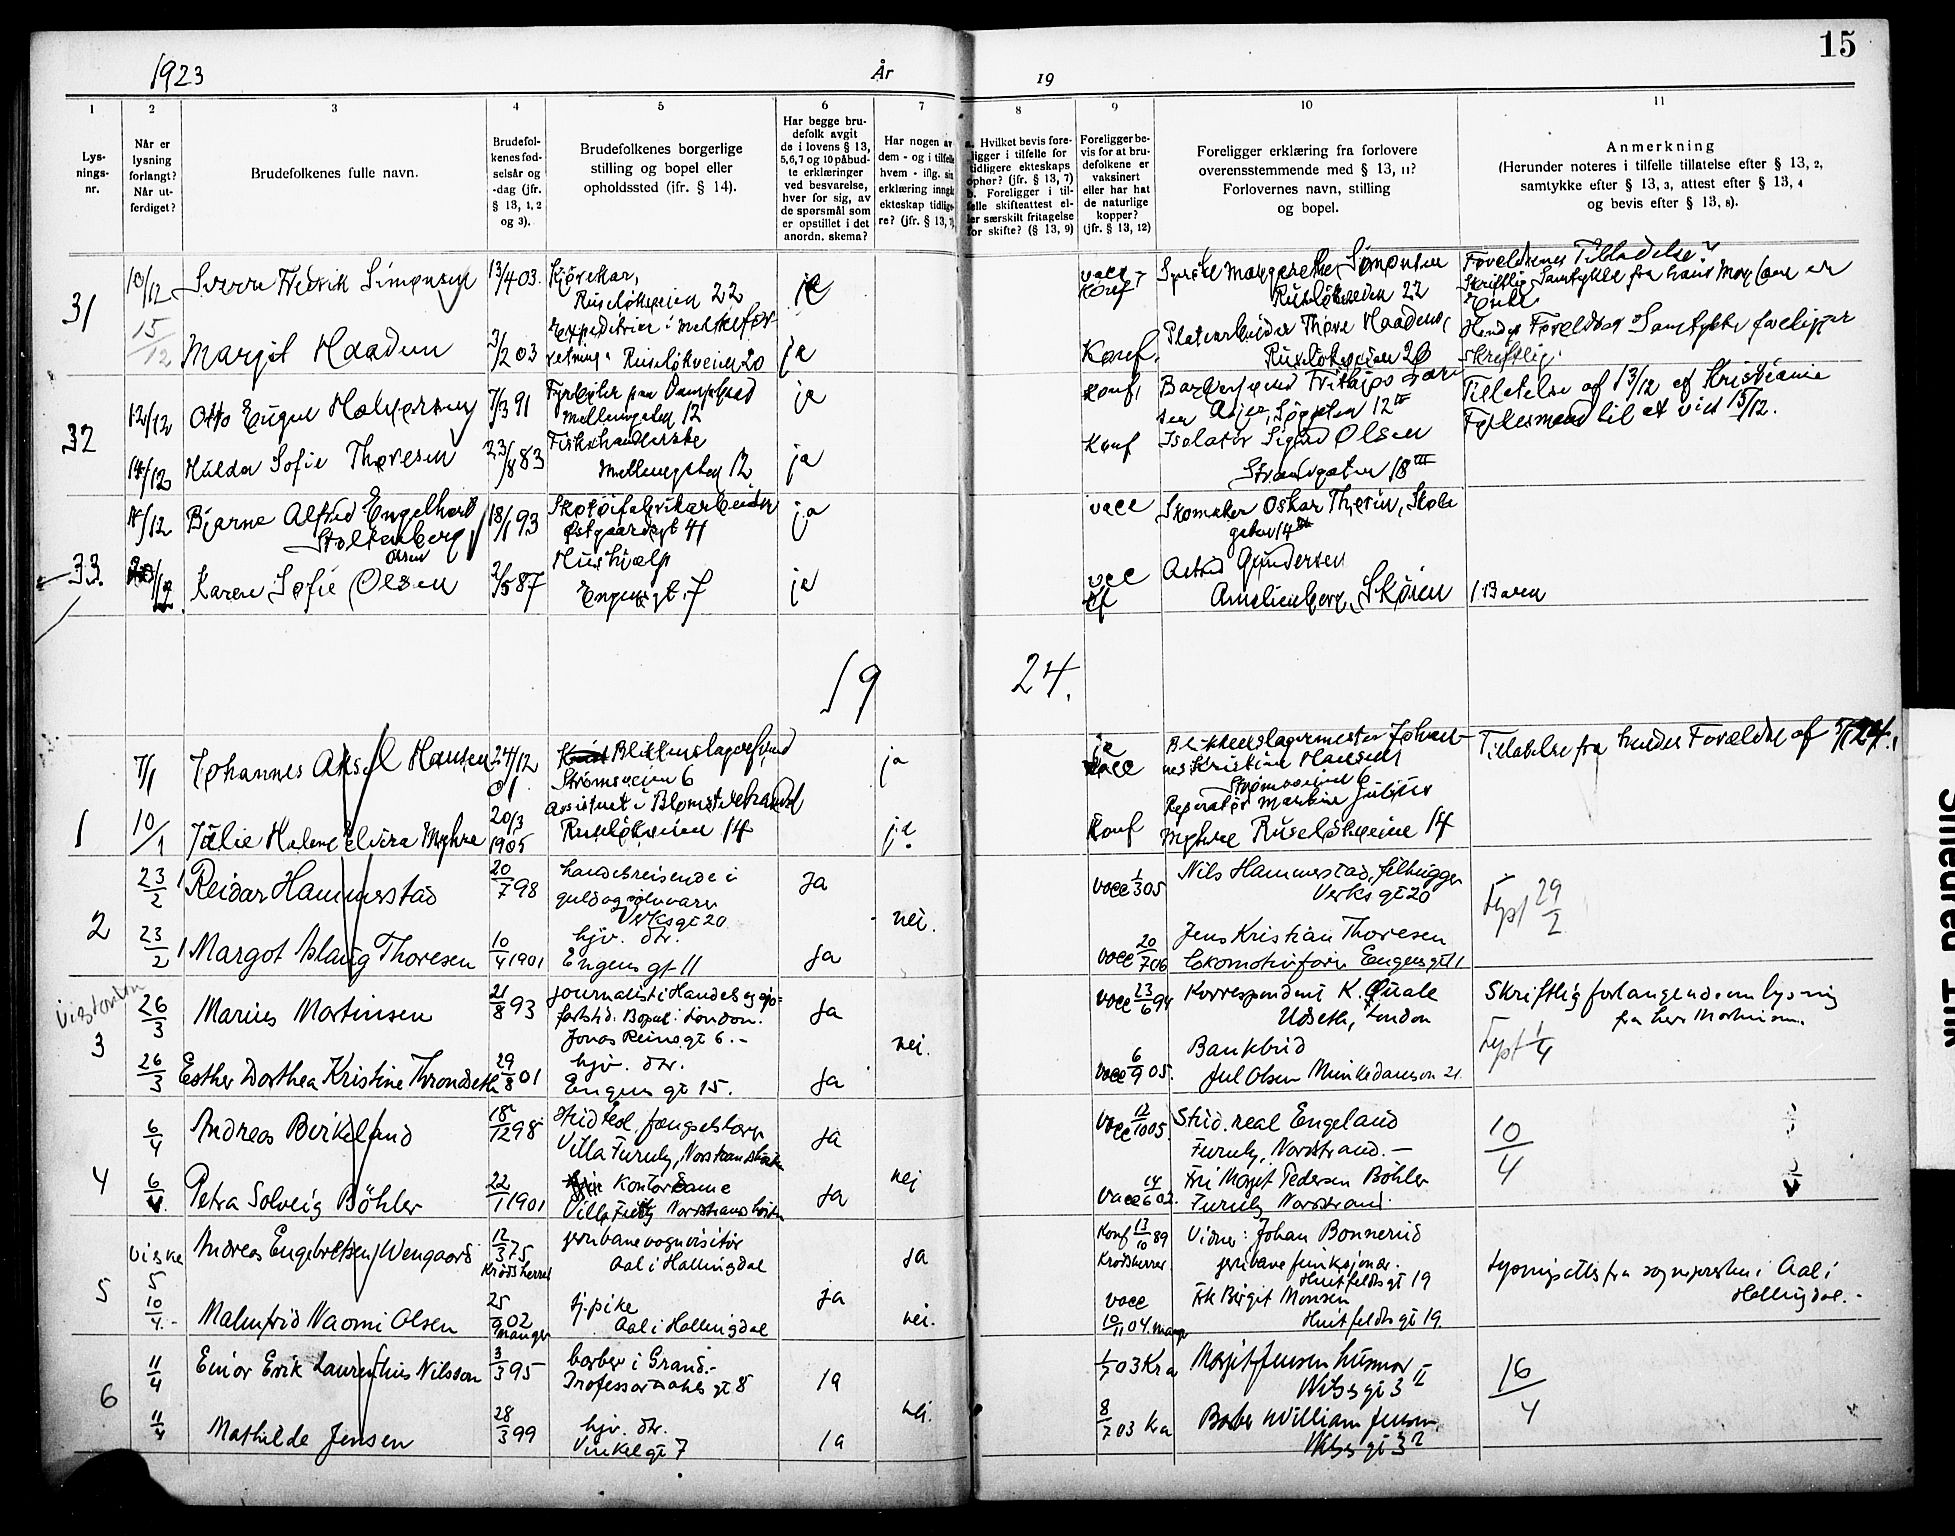 15
1923
År
19
1
2
3
4
5
6
7
8
9
10
11
Lys-
nings-
nr.
Når er
lysning
forlangt?
Når ut-
ferdiget?
Brudefolkenes fulle navn.
Brudefol-
kenes fød-
selsår og
-dag (jfr.
§ 13, 1, 2
og 3).
Brudefolkenes borgerlige
stilling og bopel eller
opholdssted (jfr. § 14).
Har begge bru-
defolk avgit
de i lovens § 13,
5,6,7 og 10 påbud-
te erklæringer
ved besvarelse,
hver for sig, av
de spørsmål som
er opstillet i det
anordn. skema?
Har nogen av
dem - og i tilfelle
hvem - iflg. sin
erklæring inngått
ekteskap tidlige-
re? (jfr. § 13, 7)
a. Hvilket bevis fore-
ligger i tilfelle for
tidligere ekteskaps
ophør? (jfr. § 13, 7)
b. Foreligger i til-
felle skifteattest el-
ler særskilt fritagelse
for skifte? (§ 13, 9)
Foreligger be-
vis for at bru-
defolkene er
vaksinert
eller har hat
de naturlige
kopper?
(jfr. § 13, 12)
Foreligger erklæring fra forlovere
overensstemmende med § 13, 11?
Forlovernes navn, stilling
og bopel.
Anmerkning
(Herunder noteres i tilfelle tillatelse efter § 13, 2,
samtykke efter § 13, 3, attest efter § 13, 4
og bevis efter § 13, 8).
31
10/12
Sverre Fredrik Simonsen
13/4 03.
Kjørekar,
Ruseløkveien 22
ja
vacc
Konf
Margrethe Simonsen
Ruseløkveien 22
Foreldrenes Tilladelse?
Skriftlig Samtykke fra hans Mor som er
Enke
15/12
Margit Haadem
3/2 03
Ruseløkveien 20
ja
Konf.
Thore Haadem,
Ruseløkveien 20
Hendes Foreldres Samtykke foreligger
skriftlig.
32
12/12
Otto Eugen Halvorsen
7/3 91
Fyrbøter paa Dampskib
Mellemgaten 12
ja
konf.
12 III
Tillatelse af 13/12 af Kristiania
til at vies 15/12.
14/12
Hulda Sofie Thoresen
23/8 83
Fiskehandlerske
Mellemgaten 12
ja
Konf
Isolatør Sigurd Olsen
Strandgaten 18 III
33.
Bjarne Alfred Engelhart
Stoltenberg
18/1 93
Skotøifabrikarbeider
Østgaardsgt 41
ja
vacc
Skomaker Oskar Thorin, Skole
gaten 14
Olsen
Karen Sofie Olsen
2/5 87
Hushjælp
Engensgt. 7
ja
vacc
Astrid Gundersen
Amelienborg, Skøien
1 Baren
19
24.
1
7/1
Johannes Aksel Hansen
24/12
01
Blikkenslagersvend
Strømsveien 6
ja
ja
vacc
Blikkenslagermester Johan-
nes Kristian Hansen
Strømsveien 6
Tillatelse fra hendes Forældre af 7/1 24.
10/1
Julie Helene Elvira Myhre
20/3
1905
Assistent i Blomsterhandel
Ruseløkveien 14
ja
Konf
Reparatør Martin Julius
Myhre Ruseløkveien 14
2
23/2
Reidar Hammerstad
20/7 98
handelsreisende i
guld og sølvvarer
Verksgt 20
Ja
nei.
vacc 1/3 05
Nils Hammerstad, filhugger
Verksgt 20
Lyst 29/2
23/2
Margot Aslaug Thoresen
10/4 1901
hjv. dtr.
Engens gt 11
Ja
vacc 20/7 06
Jens Kristian Thoresen
Lokomotivfører Engensgt 11
3
26/3
Marius Martinsen
21/8 93
journalist i Handels og sjø-
fartstid. Bopæl i London.
Jonas Reinsgt 6. -
Ja
nei.
vacc 23/6 94
Korrespondent K. Quale
Udseth, London
Skriftlig forlangende om lysning
fra herr Martinsen.
Lyst 1/4
26/3
Esther Dorthea Kristine Throndseth
29/8 01
hjv. dtr.
Engens gt 15.
Ja
vacc 6/9 05.
Bankbud
Jul Olsen Munkedamsvn 21
4
6/4
Andreas Birkeland
18/12 98
Villa Furuly, Nordstrandshøiden
Ja
nej
vacc 12/10 05.
Stud. real Engeland
Furuly, Nordstrand. -
10/4
6/4
Petra Solveig Bøhler
22/1 1901
Kontordame
Villa Furuly Nordstrandshøiden
Ja
vacc 14/6 02.
Fru Margit Pedersen Bøhler
Furuly Nordstrand.
5
Andreas Engebretsen Wengaard
12/3 75
Krødsherred
jernbanevognvisitør
Aal i Hallingdal
Ja
Konf 13/10 89
Krødsherred
Vidner: Johan Bonnerud
jernbanefunksjonær.
Huitfeldtsgt 19
Lysningsattest fra sogneprestene i Aal i
Hallingdal. -
10/4. -
Malmfrid Naomi Olsen
25/9 02
Manger
tj.pike
Aal i Hallingdal
Ja
nei.
vacc
10/11 04. Manger
Frk Birgit Monsen
Huitfeldts gt 19.
6
11/4
Einar Erik Laurenthius Nilsson
3/3 95
barber i Grand. -
Professor Dahls gt 8
Ja
nei.
1/7 03 Kra
Margit Jensen husmor
Nilsgt 3 II
16/4
11/4
Mathilde Jensen
28/3 99
hjv. dtr.
Vinkelgt 7
Ja
8/7 03 Kra
Barber William Jensen